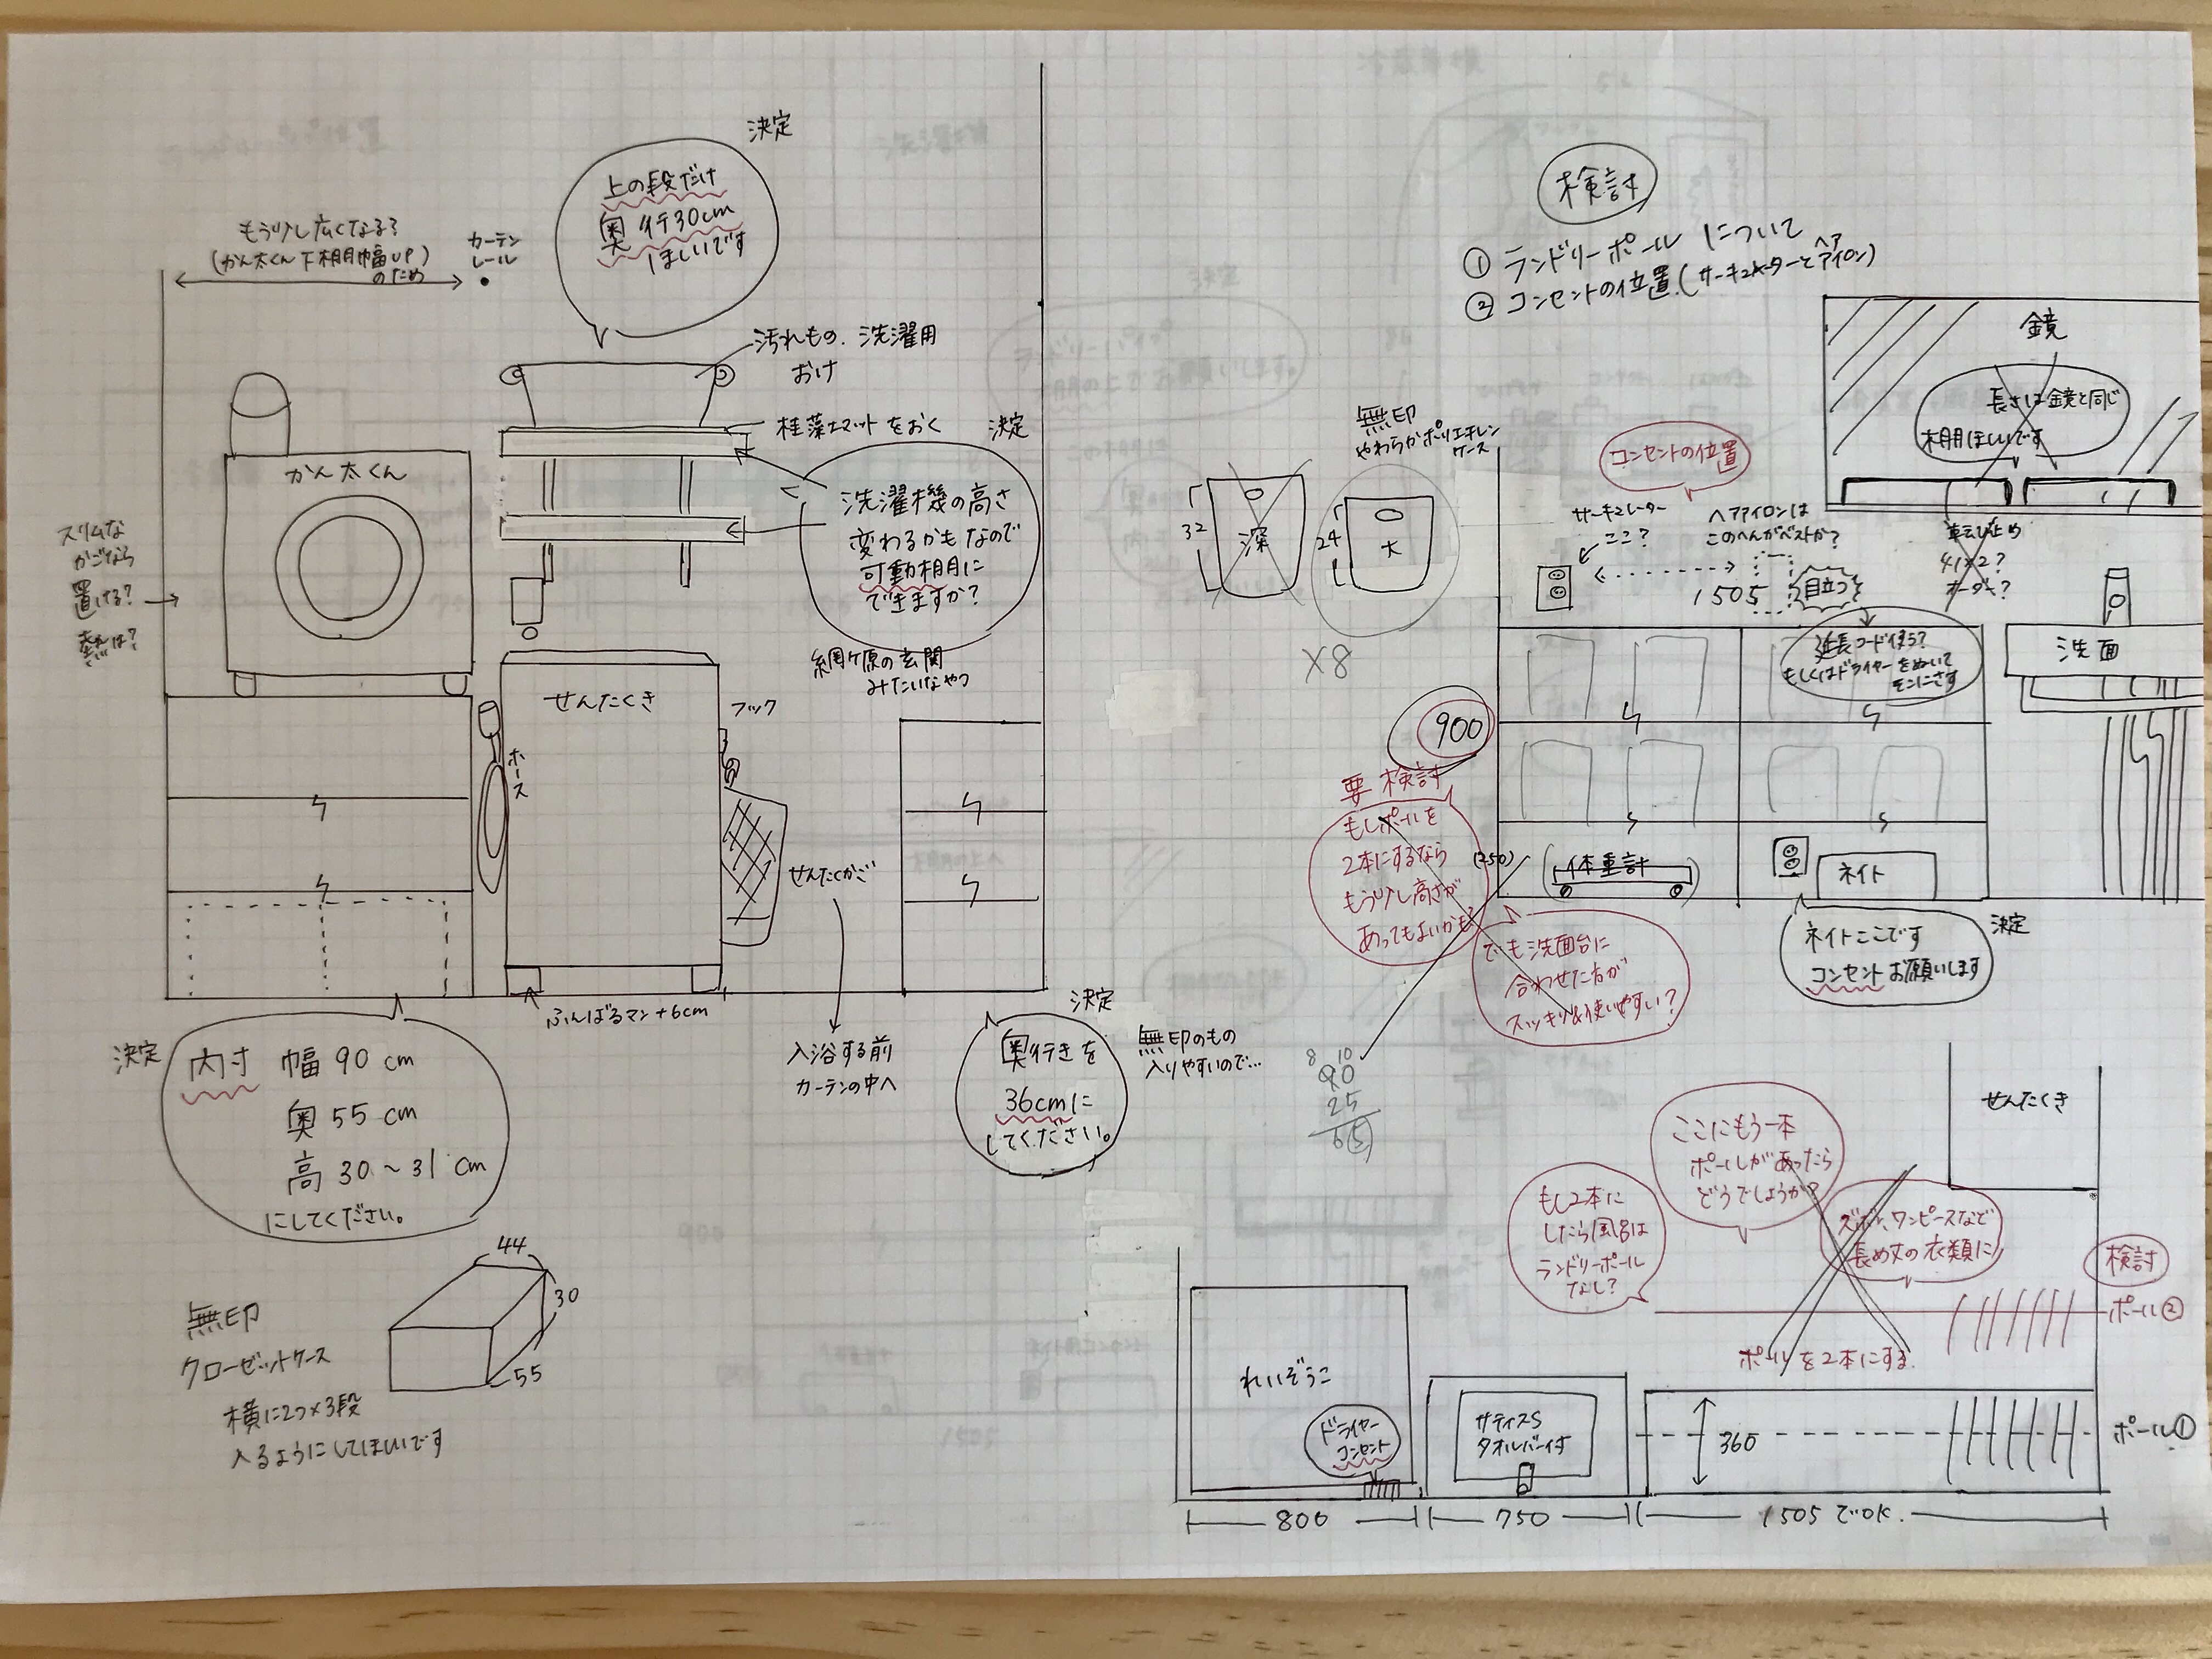 決定
上の段だけ
奥行30cm
ほしいです
もう少し広くなる?
(かん太くん下棚幅UP)
のため
カーテン
レール
汚れもの、洗濯用
おけ
珪藻土マットをおく
決定
かん太くん
洗濯機の高さ
変わるかもなので
可動棚に
できますか?
網ケ原の玄関
みたいなやつ
スリムな
かごなら
置ける?
熱は?
せんたくき
ホース
フック
せんたくかご
入浴する前
カーテンの中へ
ふんばるマン+6cm
決定
内寸 幅 90 cm
奥 55 cm
高 30~31 cm
にしてください。
決定
奥行きを
36cmに
してください。
無印のもの
入りやすいので…
無印
クローゼットケース
横に2つ×3段
入るようにしてほしいです
44
30
55
検討
① ランドリーポールについて
② コンセントの位置(サーキュレーターとヘアアイロン)
鏡
長さは鏡と同じ
棚ほしいです
転び止め
41×2?
オーダー?
無印
やわらかポリエチレン
ケース
32
深
24
大
×8
コンセントの位置
サーキュレーター
ここ?
ヘアアイロンは
このへんがベストか?
1505
目立つ
延長コード使う?
もしくはドライヤーをぬいて
そこにさす
洗面
900
要検討
もしポールを
2本にするなら
もう少し高さが
あってもよいかも?
(250)
体重計
ネイト
でも洗面台に
合わせた方が
スッキリ&使いやすい?
決定
ネイトここです
コンセントお願いします
8 10
90
25
65
せんたくき
ここにもう一本
ポールがあったら
どうでしょうか?
もし2本に
したら風呂は
ランドリーポール
なし?
ズボン、ワンピースなど
長め丈の衣類に
検討
ポール②
ポールを2本にする
れいぞうこ
ドライヤー
コンセント
サティスS
タオルバー付
360
ポール①
800
750
1505でOK.